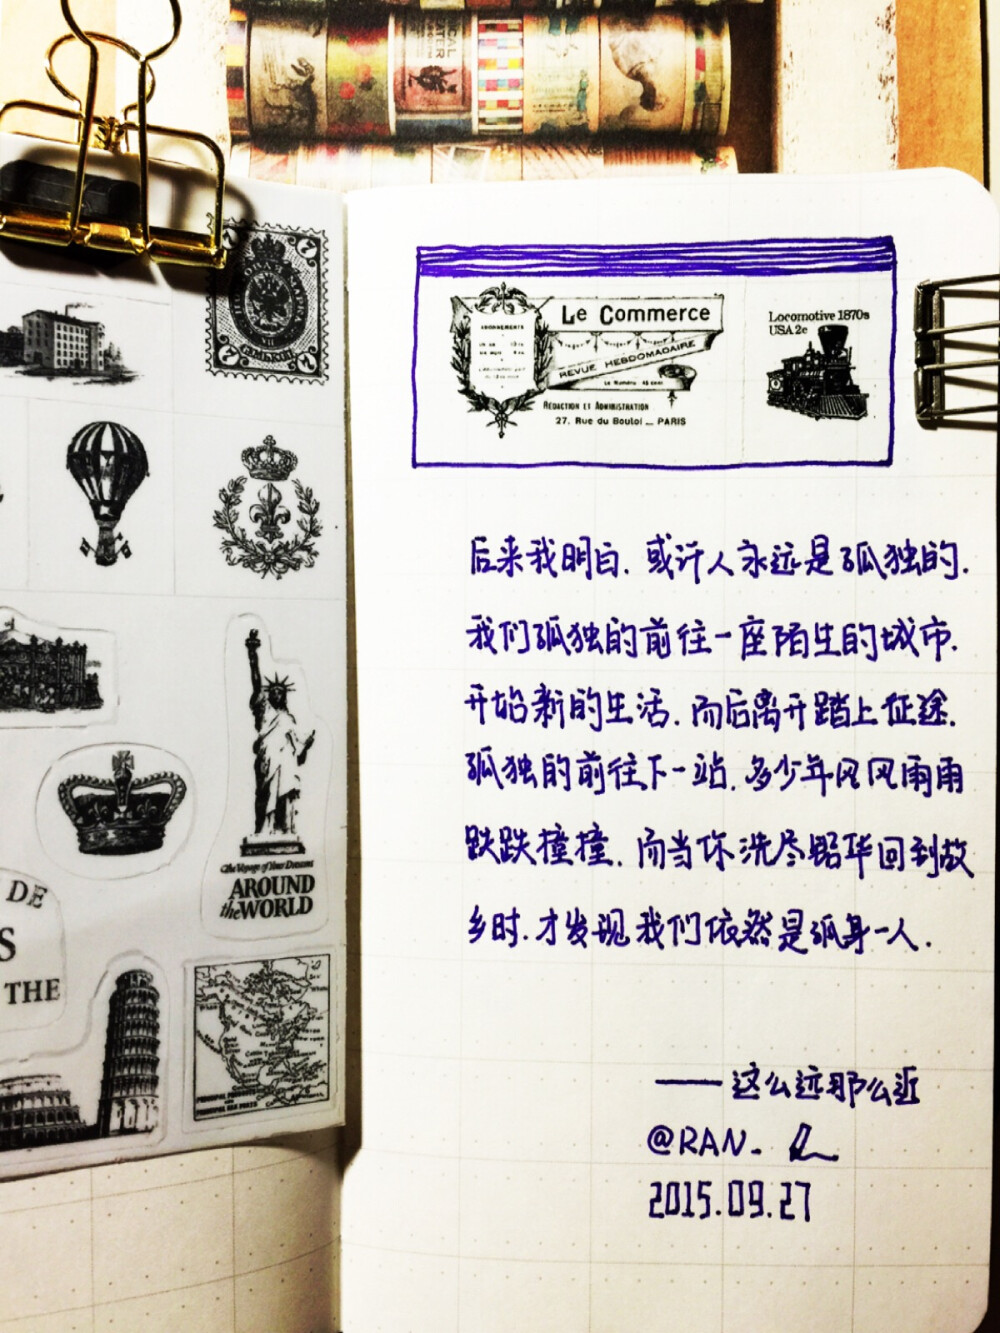 AROUND
the WORLD
DE
S
THE
Le Commerce
REVUE HEBDOMADAIRE
Le Numéro 45 cent
REDACTION ET ADMINISTRATION
27. Rue du Bouloi _ PARIS
ABONNEMENTS
Locomotive 1870s
USA 2c
后来我明白.或许人永远是孤独的.
我们孤独的前往一座陌生的城市.
开始新的生活.而后离开踏上征途.
孤独的前往下一站.多少年风风雨雨
跌跌撞撞.而当你洗尽铅华回到故
乡时.才发现我们依然是孤身一人.
——这么远那么近
@RAN.
2015.09.27